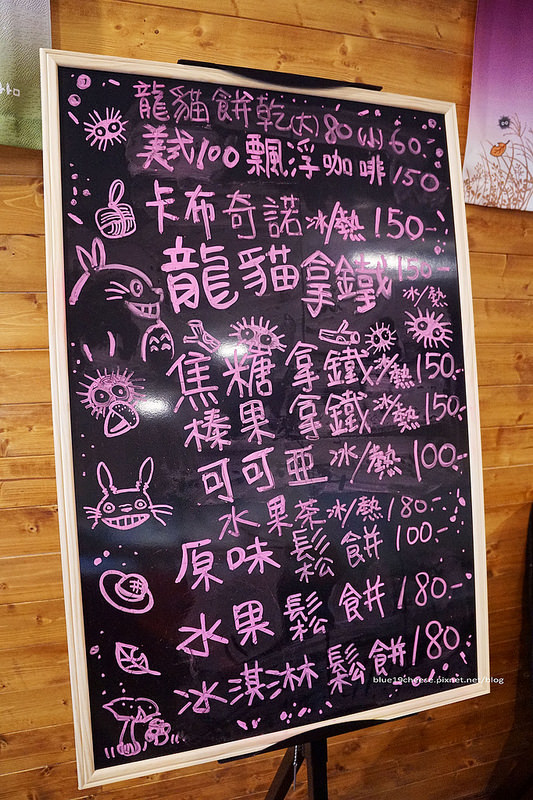 龍貓餅乾(大)80 (小)60.-
美式100 飄浮咖啡 150
卡布奇諾 冰/熱 150.-
龍貓拿鐵 150.-
冰/熱
焦糖拿鐵 冰/熱 150.-
榛果拿鐵 冰/熱 150.-
可可亞 冰/熱 100.-
水果茶 冰/熱 180.-
原味鬆餅 100.-
水果鬆餅 180.-
冰淇淋鬆餅 180
blue19cheese.pixnet.net/blog